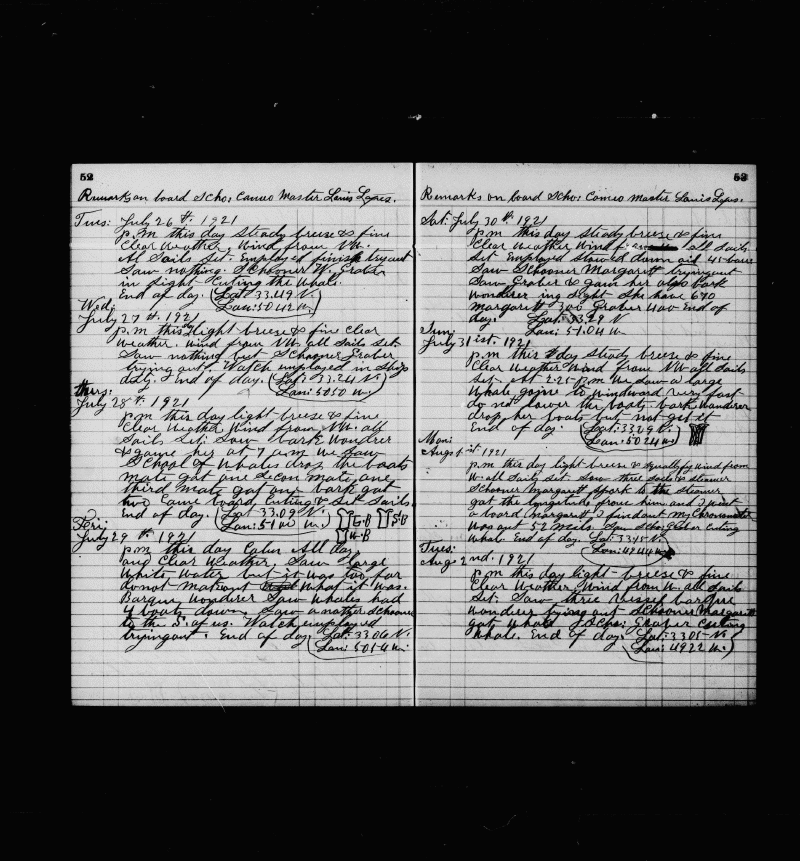 52
Remarks on board Scho: Cameo Master Louis Lopes.
Tues: July 26th. 1921
p.m this day Steady breeze & fine
Clear Weather, Wind from NW.
All Sails Set. Employed finish tryout
Saw nothing. Schooner W. Graber
in sight Cuting the Whale.
End of day. (Lat. 33.49 N.
Lon: 50 42 W.)
Wed;
July 27th. 1921
p.m this day light breese & fine clear
Weather. Wind from NW all Sails Set
Saw nothing but Schooner Graber
trying out. Watch employed in Ship
duty. End of day. (Lat: 33.24 N.
Lon: 50 50 W.)
thurs:
July 28th. 1921
p.m this day light breese & fine
Clear Weather Wind from NW. all
Sails Set: Saw bark Wondrer
& game her at 7 a.m We saw
School of Whales drop the boats
mate gat one Secon mate one
third Mate gat one bark gat
two Came board Cuting & Set Sails
End of day. (Lat 33.09 N.
Lon: 51 00 W.) L-B S-B
W-B
Fri:
July 29th. 1921
p.m this day Calm All day
and Clear Weather. Saw large
White Water but it was too far
donat Makeout What it was.
Barque Wonderer Saw Whales had
4 boats down. Saw another Schooner
to the S. of us. Watch employed
tryingout. End of day. Lat: 33 06 N.
Lon: 50 54 W.
53
Remarks on board Scho: Cameo Master Louis Lopes.
Sat: July 30th. 1921
p.m this day Steady breeze & fine
Clear Weather Wind f. all Sails
Set Employed Stowed down oil 45 bares
Saw Schooner Margarett tryingout
Saw Graber & gam her also bark
Wonderer ing Sight. She have 670
Margarett 300 Graber 400 End of
day. Lat. 33.29 N
Lon: 51.04 W.
Sun;
July 31 ist. 1921
p.m this day Steady breese & fine
Clear Weather Wind from NW all Sails
Set. At 2-25 p.m We Saw a large
Whale going to Windward Very fast
do not lower the boats. bark Wonderer
drop her boats but not get it
End of day. (Lat: 33.09 N.
Lon: 50 24 W.)
Mon:
Augs 1st. 1921
p.m this day light breese & Squally Wind from
W. all Sails Set. Saw three Sails & Steamer
Schooner Margarett spork to the Steamer
gat the longitude from him and I Went
a board Margarett I findout my Chronometer
Was out 52 Meils Scho. Graber Cuting
Whale. End of day. Lat. 33 15 N.
Lon: 49 44 W.
Tues:
Augs 2nd. 1921
p.m this day light breese & fine
Clear Weather, Wind from W. all Sails
Set: Saw three Vessels barque
Wonderer trying out Schooner Margarett
gat Whale & Scho: Graber Cuting
Whale. End of day Lat: 33.05 N.
(Lon: 49 22 W.)